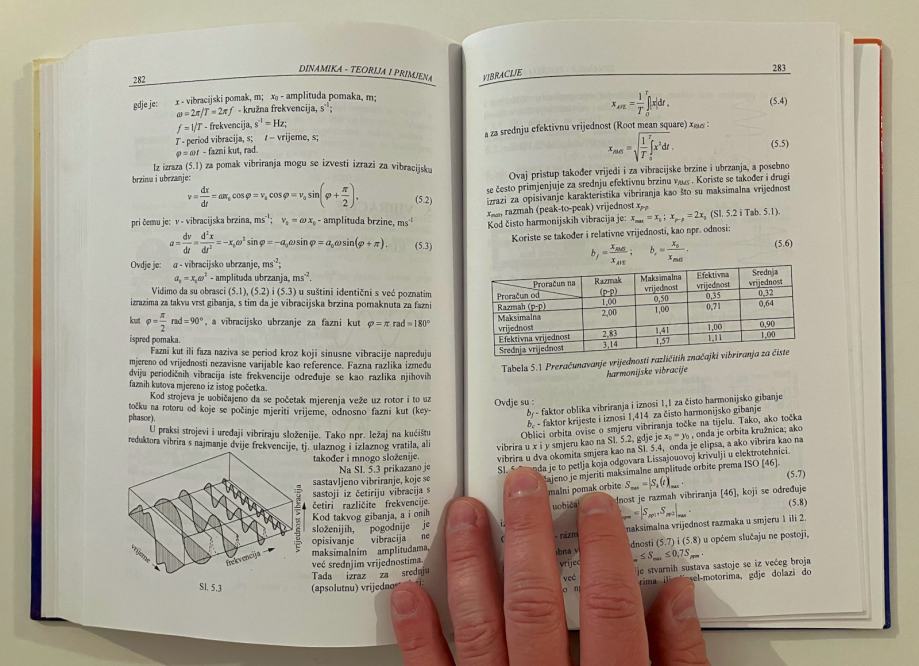 282
DINAMIKA - TEORIJA I PRIMJENA
gdje je: x - vibracijski pomak, m; x₀ - amplituda pomaka, m;
ω = 2π/T = 2πf - kružna frekvencija, s⁻¹;
f = 1/T - frekvencija, s⁻¹ = Hz;
T - period vibracija, s; t – vrijeme, s;
φ = ωt - fazni kut, rad.
Iz izraza (5.1) za pomak vibriranja mogu se izvesti izrazi za vibracijsku
brzinu i ubrzanje:
v = dx/dt = ωx₀ cosφ = v₀ cosφ = v₀ sin(φ + π/2), (5.2)
pri čemu je: v - vibracijska brzina, ms⁻¹; v₀ = ω x₀ - amplituda brzine, ms⁻¹
a = dv/dt = d²x/dt² = -x₀ω² sinφ = -a₀ω sinφ = a₀ω sin(φ + π). (5.3)
Ovdje je: a - vibracijsko ubrzanje, ms⁻²;
a₀ = x₀ω² - amplituda ubrzanja, ms⁻².
Vidimo da su obrasci (5.1), (5.2) i (5.3) u suštini identični s već poznatim
izrazima za takvu vrst gibanja, s tim da je vibracijska brzina pomaknuta za fazni
kut φ = π/2 rad = 90°, a vibracijsko ubrzanje za fazni kut φ = π rad = 180°
ispred pomaka.
Fazni kut ili faza naziva se period kroz koji sinusne vibracije napreduju
mjereno od vrijednosti nezavisne varijable kao reference. Fazna razlika između
dviju periodičnih vibracija iste frekvencije određuje se kao razlika njihovih
faznih kutova mjereno iz istog početka.
Kod strojeva je uobičajeno da se početak mjerenja veže uz rotor i to uz
točku na rotoru od koje se počinje mjeriti vrijeme, odnosno fazni kut (key-
phasor).
U praksi strojevi i uređaji vibriraju složenije. Tako npr. ležaj na kućištu
reduktora vibrira s najmanje dvije frekvencije, tj. ulaznog i izlaznog vratila, ali
također i mnogo složenije.
Na Sl. 5.3 prikazano je
sastavljeno vibriranje, koje se
sastoji iz četiriju vibracija s
četiri različite frekvencije.
Kod takvog gibanja, a i onih
složenijih, pogodnije je
opisivanje vibracija ne
maksimalnim amplitudama,
već srednjim vrijednostima.
Tada izraz za srednju
(apsolutnu)
vrijeme
frekvencija
vrijednost vibracija
Sl. 5.3
VIBRACIJE
283
x_AVE = 1/T ∫₀ᵀ |x|dt, (5.4)
a za srednju efektivnu vrijednost (Root mean square) x_RMS :
x_RMS = √(1/T ∫₀ᵀ x²dt) . (5.5)
Ovaj pristup također vrijedi i za vibracijske brzine i ubrzanja, a posebno
se često primjenjuje za srednju efektivnu brzinu v_RMS. Koriste se također i drugi
izrazi za opisivanje karakteristika vibriranja kao što su maksimalna vrijednost
x_max, razmah (peak-to-peak) vrijednost x_p-p.
Kod čisto harmonijskih vibracija je: x_max = x₀ ; x_p-p = 2x₀ (Sl. 5.2 i Tab. 5.1).
Koriste se također i relativne vrijednosti, kao npr. odnosi:
b_f = x_RMS/x_AVE ; b_c = x₀/x_RMS . (5.6)
Proračun na Razmak (p-p) Maksimalna vrijednost Efektivna vrijednost Srednja vrijednost
Proračun od
Razmah (p-p) 1,00 0,50 0,35 0,32
Maksimalna vrijednost 2,00 1,00 0,71 0,64
Efektivna vrijednost 2,83 1,41 1,00 0,90
Srednja vrijednost 3,14 1,57 1,11 1,00
Tabela 5.1 Preračunavanje vrijednosti različitih značajki vibriranja za čiste
harmonijske vibracije
Ovdje su :
b_f - faktor oblika vibriranja i iznosi 1,1 za čisto harmonijsko gibanje
b_c - faktor krijeste i iznosi 1,414 za čisto harmonijsko gibanje
Oblici orbita ovise o smjeru vibriranja točke na tijelu. Tako, ako točka
vibrira u x i y smjeru kao na Sl. 5.2, gdje je x₀ = y₀ , onda je orbita kružnica; ako
vibrira u dva okomita smjera kao na Sl. 5.4, onda je elipsa, a ako vibrira kao na
Sl. onda je to petlja koja odgovara Lissajouovoj krivulji u elektrotehnici.
je mjeriti maksimalne amplitude orbite prema ISO [46].
pomak orbite S_max = |S₁(t)|_max . (5.7)
je razmah vibriranja [46], koji se određuje
= |S_pp1, S_pp2|_max . (5.8)
maksimalna vrijednost razmaka u smjeru 1 ili 2.
(5.7) i (5.8) u općem slučaju ne postoji,
≤ S_max ≤ 0,7S_ppm .
stvarnih sustava sastoje se iz većeg broja
već ili gdje dolazi do